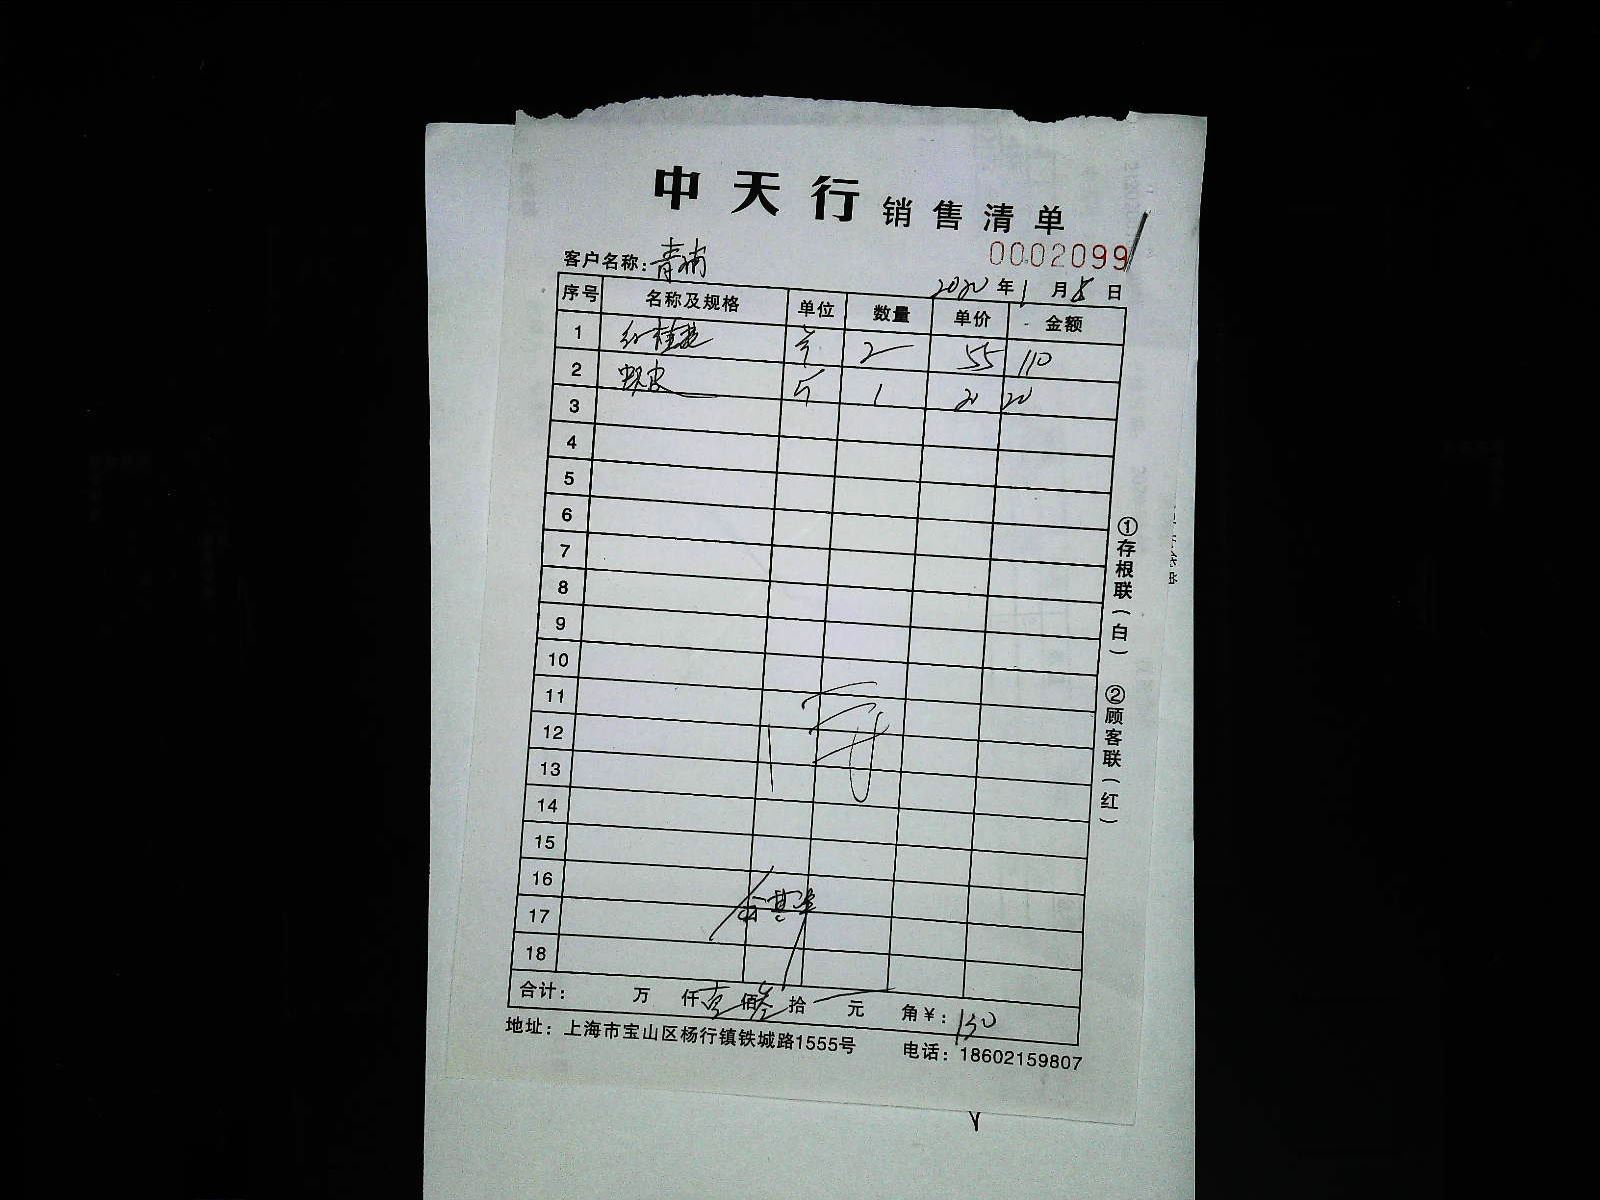 中天行 销售清单
0002099
客户名称：青浦
2020年1月8日
序号 名称及规格 单位 数量 单价 金额
1 红桂 2 55 110
2 虾皮 斤 1 20 20
3
4
5
6
7
8
9
10
11
12
13
14
15
16
17
18
合计： 万 仟壹佰叁拾 元 角￥：130
地址：上海市宝山区杨行镇铁城路1555号 电话：18602159807
①存根联（白） ②顾客联（红）